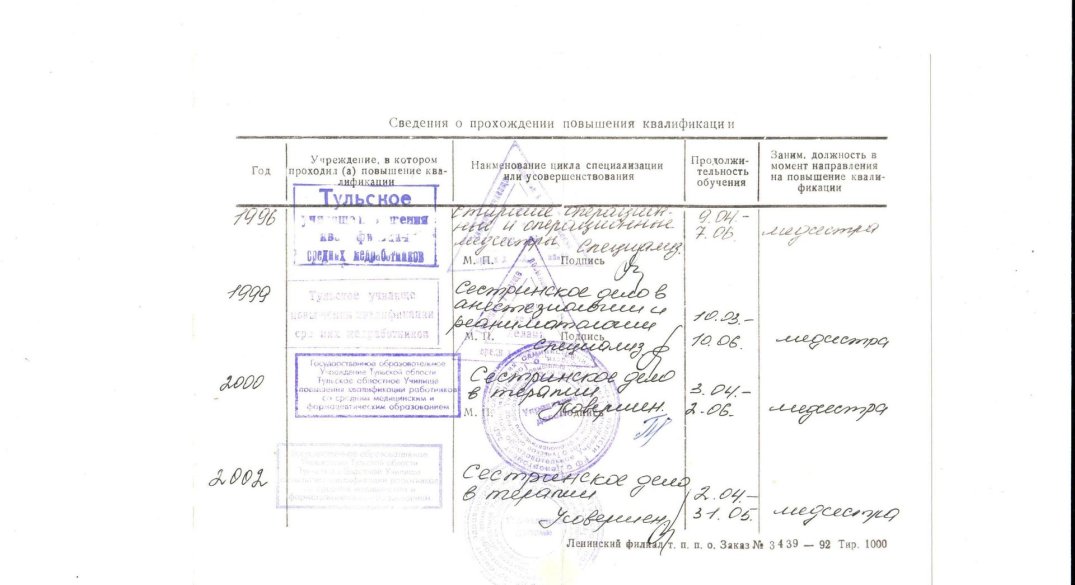 Сведения о прохождении повышения квалификации
Год
Учреждение, в котором
проходил (а) повышение ква-
лификации
Наименование цикла специализации
или усовершенствования
Продолжи-
тельность
обучения
Заним. должность в
момент направления
на повышение квали-
фикации
1996
Тульское
училище
средних медработников
старшие операцион-
ные и операционные
медсестры специализ.
М. П. Подпись
9.04-
7.06.
медсестра
1999
Тульское училище
повышения квалификации
средних медработников
Сестринское дело в
анестезиологии и
реаниматологии
М. П. Подпись
специализ
10.03.-
10.06.
медсестра
2000
Государственное образовательное
Учреждение Тульской области
Тульское областное Училище
повышения квалификации работников
со средним медицинским и
фармацевтическим образованием
Сестринское дело
в терапии
Усовершен.
М. П. Подпись
3.04.-
2.06.
медсестра
2002
Государственное образовательное
Учреждение Тульской области
Тульское областное Училище
повышения квалификации работников
со средним медицинским и
фармацевтическим образованием
Сестринское дело
в терапии
Усовершен
2.04.-
31.05.
медсестра
Ленинский филиал т. п. п. о. Заказ № 3439 — 92 Тир. 1000